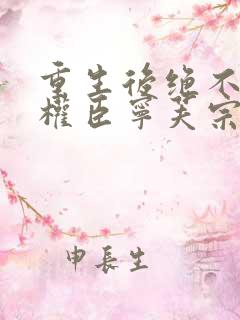 重生後绝不
權臣寧芙宗
申長生